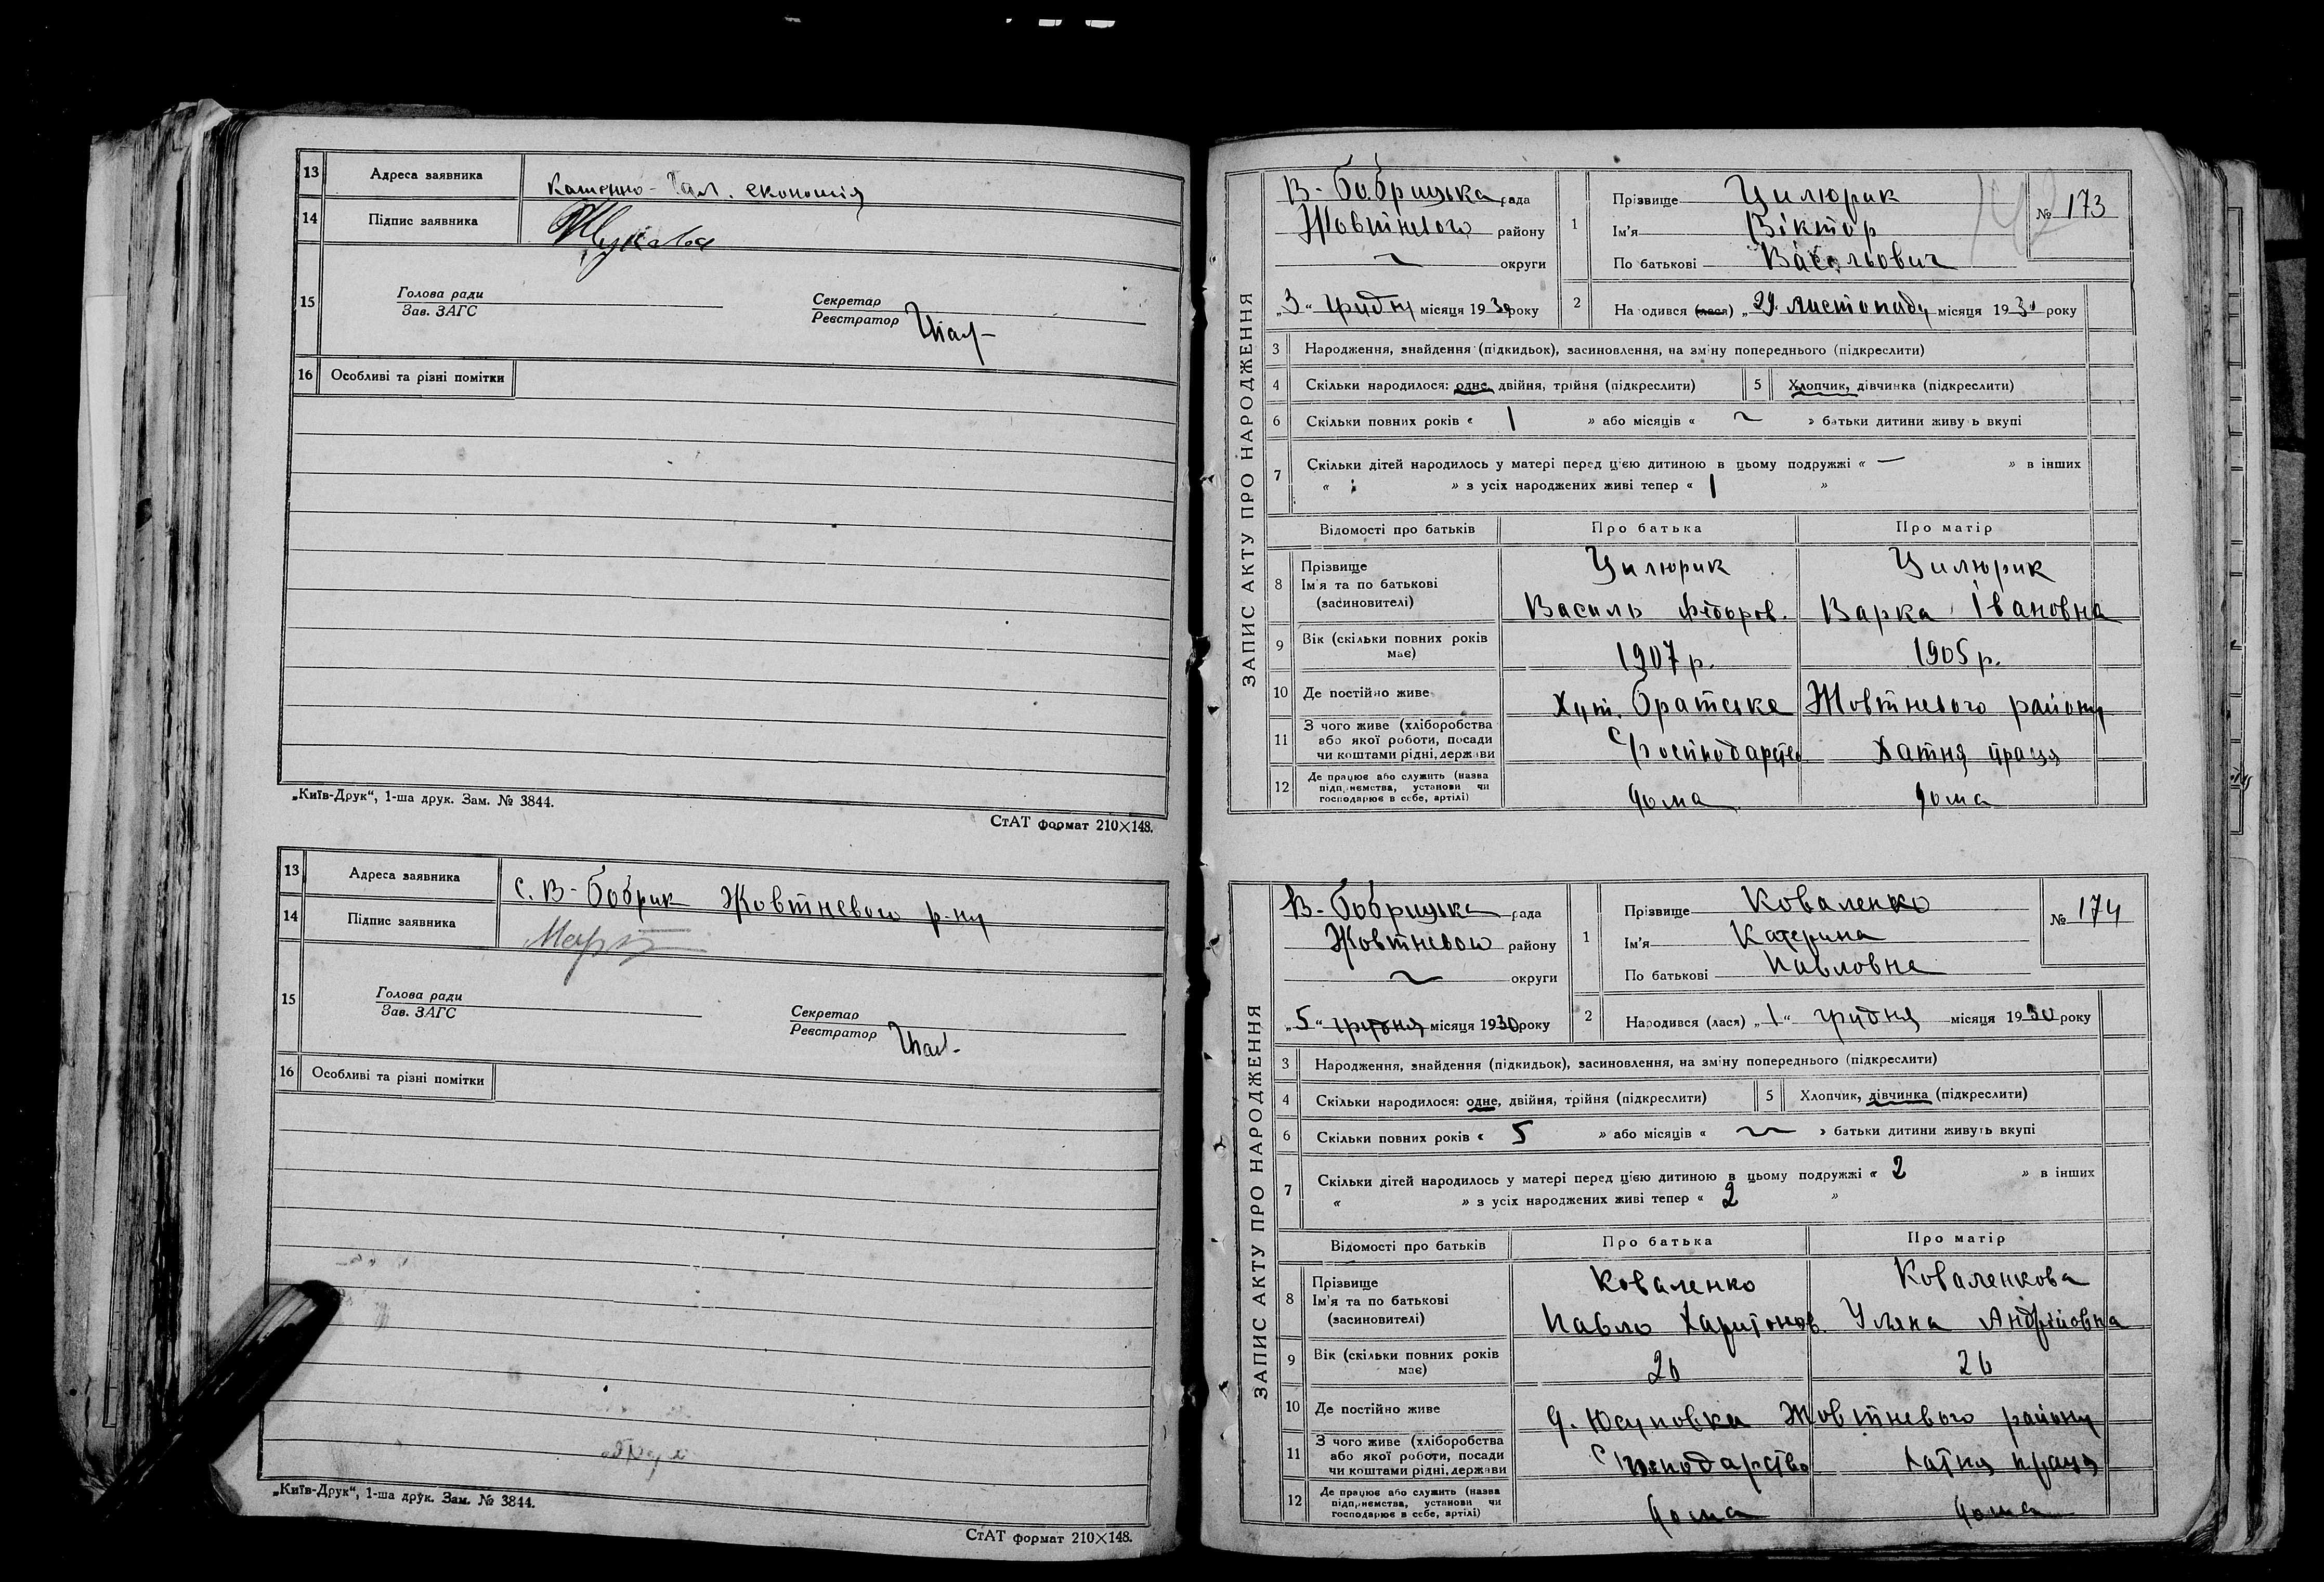 13 Адреса заявника Каменно- . економія
14 Підпис заявника
15 Голова ради
Зав. ЗАГС
Секретар
Реєстратор
16 Особливі та різні помітки
„Київ-Друк“, 1-ша друк. Зам. № 3844.
СтАТ формат 210×148.
13 Адреса заявника с. В-Бобрик Жовтневого р-ну
14 Підпис заявника
15 Голова ради
Зав. ЗАГС
Секретар
Реєстратор
16 Особливі та різні помітки
„Київ-Друк“, 1-ша друк. Зам. № 3844.
СтАТ формат 210×148.
ЗАПИС АКТУ ПРО НАРОДЖЕННЯ
В-Бобрицька рада
Жовтневого району
~ округи
„3“ грудня місяця 1930 року
1 Прізвище Цилюрик
Ім'я Віктор
По батькові Васильович
№ 173
2 Народився (лася) „29“ листопаду місяця 1930 року
3 Народження, знайдення (підкидьок), засиновлення, на зміну попереднього (підкреслити)
4 Скільки народилося: одне, двійня, трійня (підкреслити) 5 Хлопчик, дівчинка (підкреслити)
6 Скільки повних років « 1 » або місяців « ~ » батьки дитини живуть вкупі
7 Скільки дітей народилось у матері перед цією дитиною в цьому подружжі « — » в інших
« » з усіх народжених живі тепер « 1 »
Відомості про батьків Про батька Про матір
8 Прізвище Цилюрик Цилюрик
Ім'я та по батькові
(засиновителі) Василь Федоров. Варка Івановна
9 Вік (скільки повних років
має) 1907 р. 1905 р.
10 Де постійно живе Хут. Братське Жовтневого району
11 З чого живе (хліборобства
або якої роботи, посади
чи коштами рідні, держави С/господарство Хатня праця
12 Де працює або служить (назва
підприємства, установи чи
господарює в себе, артілі) дома дома
ЗАПИС АКТУ ПРО НАРОДЖЕННЯ
В-Бобрицька рада
Жовтневого району
~ округи
„5“ грудня місяця 1930 року
1 Прізвище Коваленко
Ім'я Катерина
По батькові Павловна
№ 174
2 Народився (лася) „1“ грудня місяця 1930 року
3 Народження, знайдення (підкидьок), засиновлення, на зміну попереднього (підкреслити)
4 Скільки народилося: одне, двійня, трійня (підкреслити) 5 Хлопчик, дівчинка (підкреслити)
6 Скільки повних років « 5 » або місяців « ~ » батьки дитини живуть вкупі
7 Скільки дітей народилось у матері перед цією дитиною в цьому подружжі « 2 » в інших
« » з усіх народжених живі тепер « 2 »
Відомості про батьків Про батька Про матір
8 Прізвище Коваленко Коваленкова
Ім'я та по батькові
(засиновителі) Павло Харитонов. Уляна Андрійовна
9 Вік (скільки повних років
має) 26 26
10 Де постійно живе д. Юсуповка Жовтневого району
11 З чого живе (хліборобства
або якої роботи, посади
чи коштами рідні, держави С/господарство Хатня праця
12 Де працює або служить (назва
підприємства, установи чи
господарює в себе, артілі) дома дома